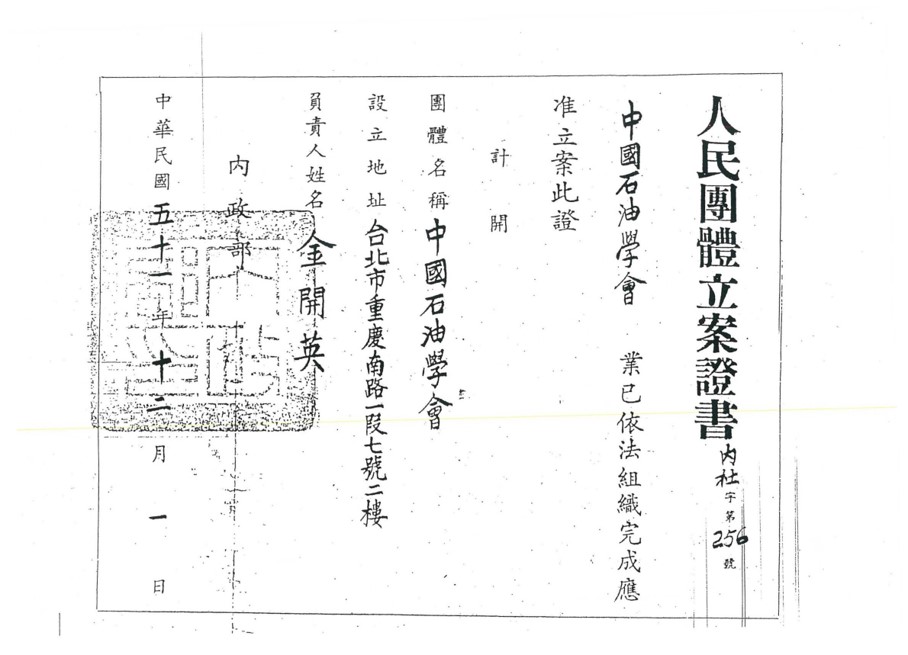 人民團體立案證書 內社字第256號
中國石油學會 業已依法組織完成應
准立案此證
計開
團體名稱 中國石油學會
設立地址 台北市重慶南路一段七號二樓
負責人姓名 金開英
內政部
中華民國五十一年十二月一日